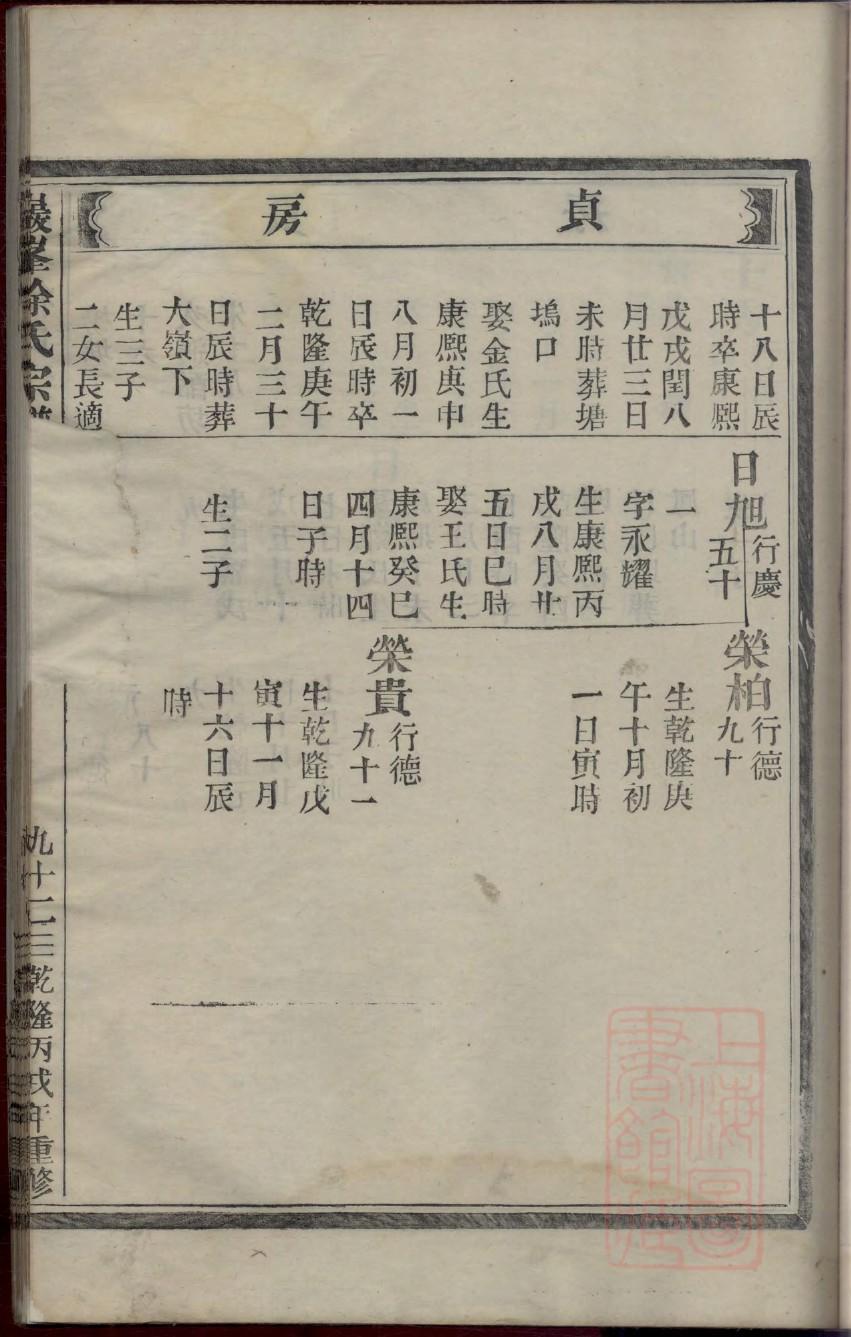 貞房
十八日辰
時卒康熙
戊戌閏八
月廿三日
未時葬塘
塢口
娶金氏生
康熙庚申
八月初一
日辰時卒
乾隆庚午
二月三十
日辰時葬
大嶺下
生三子
二女長適
日旭
行慶
五十
一
字永耀
生康熙丙
戌八月廿
五日巳時
娶王氏生
康熙癸巳
四月十四
日子時
生二子
榮柏
行德
九十
生乾隆庚
午十月初
一日寅時
榮貴
行德
九十一
生乾隆戊
寅十一月
十六日辰
時
巖峯徐氏宗譜
九十二
乾隆丙戌年重修
上海圖書館藏